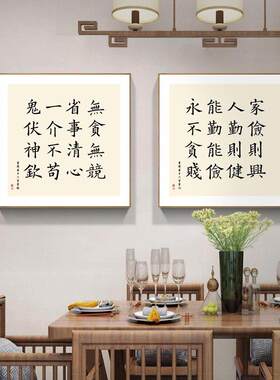 家儉則興
人勤則健
能勤能儉
永不貧賤
無貪無競
省事清心
一介不苟
鬼伏神欽